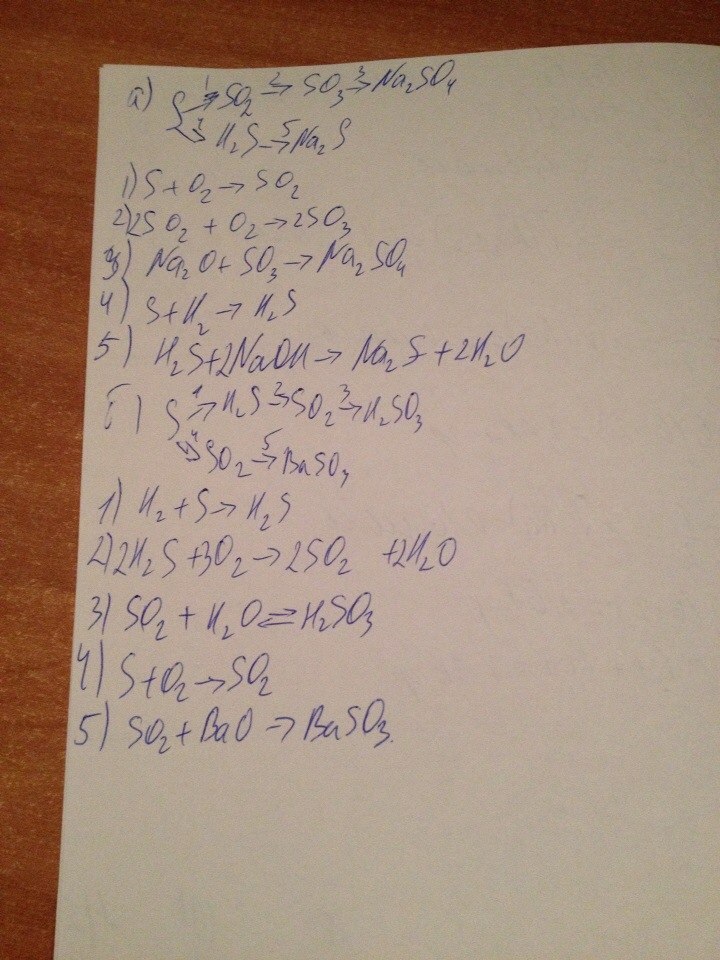 а) S 1→ SO₂ 2→ SO₃ 3→ Na₂SO₄
4→ H₂S 5→ Na₂S
1) S + O₂ → SO₂
2) 2SO₂ + O₂ → 2SO₃
3) Na₂O + SO₃ → Na₂SO₄
4) S + H₂ → H₂S
5) H₂S + 2NaOH → Na₂S + 2H₂O
б) S 1→ H₂S 2→ SO₂ 3→ H₂SO₃
4→ SO₂ 5→ BaSO₃
1) H₂ + S → H₂S
2) 2H₂S + 3O₂ → 2SO₂ + 2H₂O
3) SO₂ + H₂O ⇌ H₂SO₃
4) S + O₂ → SO₂
5) SO₂ + BaO → BaSO₃.